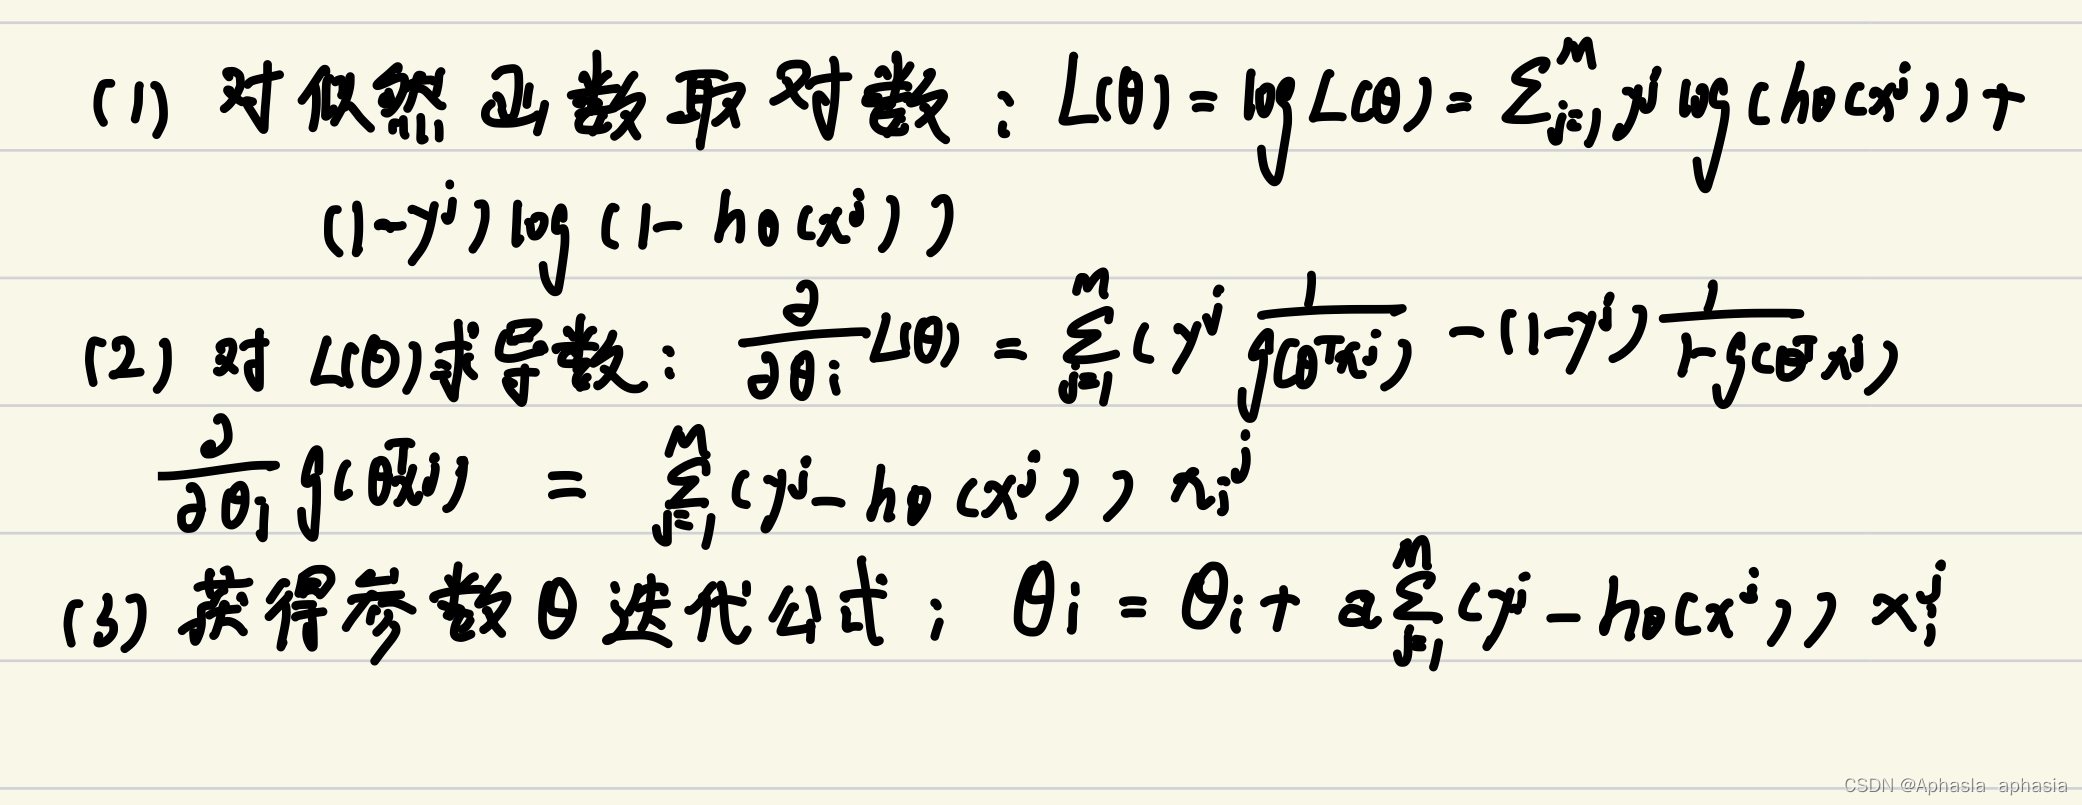 (1) 对似然函数取对数：L(θ) = log L(θ) = ∑_{j=1}^{m} y^j log(hθ(x^j)) +
(1-y^j) log(1-hθ(x^j))
(2) 对 L(θ)求导数：∂/∂θi L(θ) = ∑_{j=1}^{m} (y^j 1/g(θ^T x^j) - (1-y^j) 1/1-g(θ^T x^j)
∂/∂θi g(θ^T x^j) = ∑_{j=1}^{m} (y^j - hθ(x^j)) x_i^j
(3) 获得参数θ迭代公式；θi = θi + a ∑_{j=1}^{m} (y^j - hθ(x^j)) x_i^j
CSDN @Aphasla aphasia